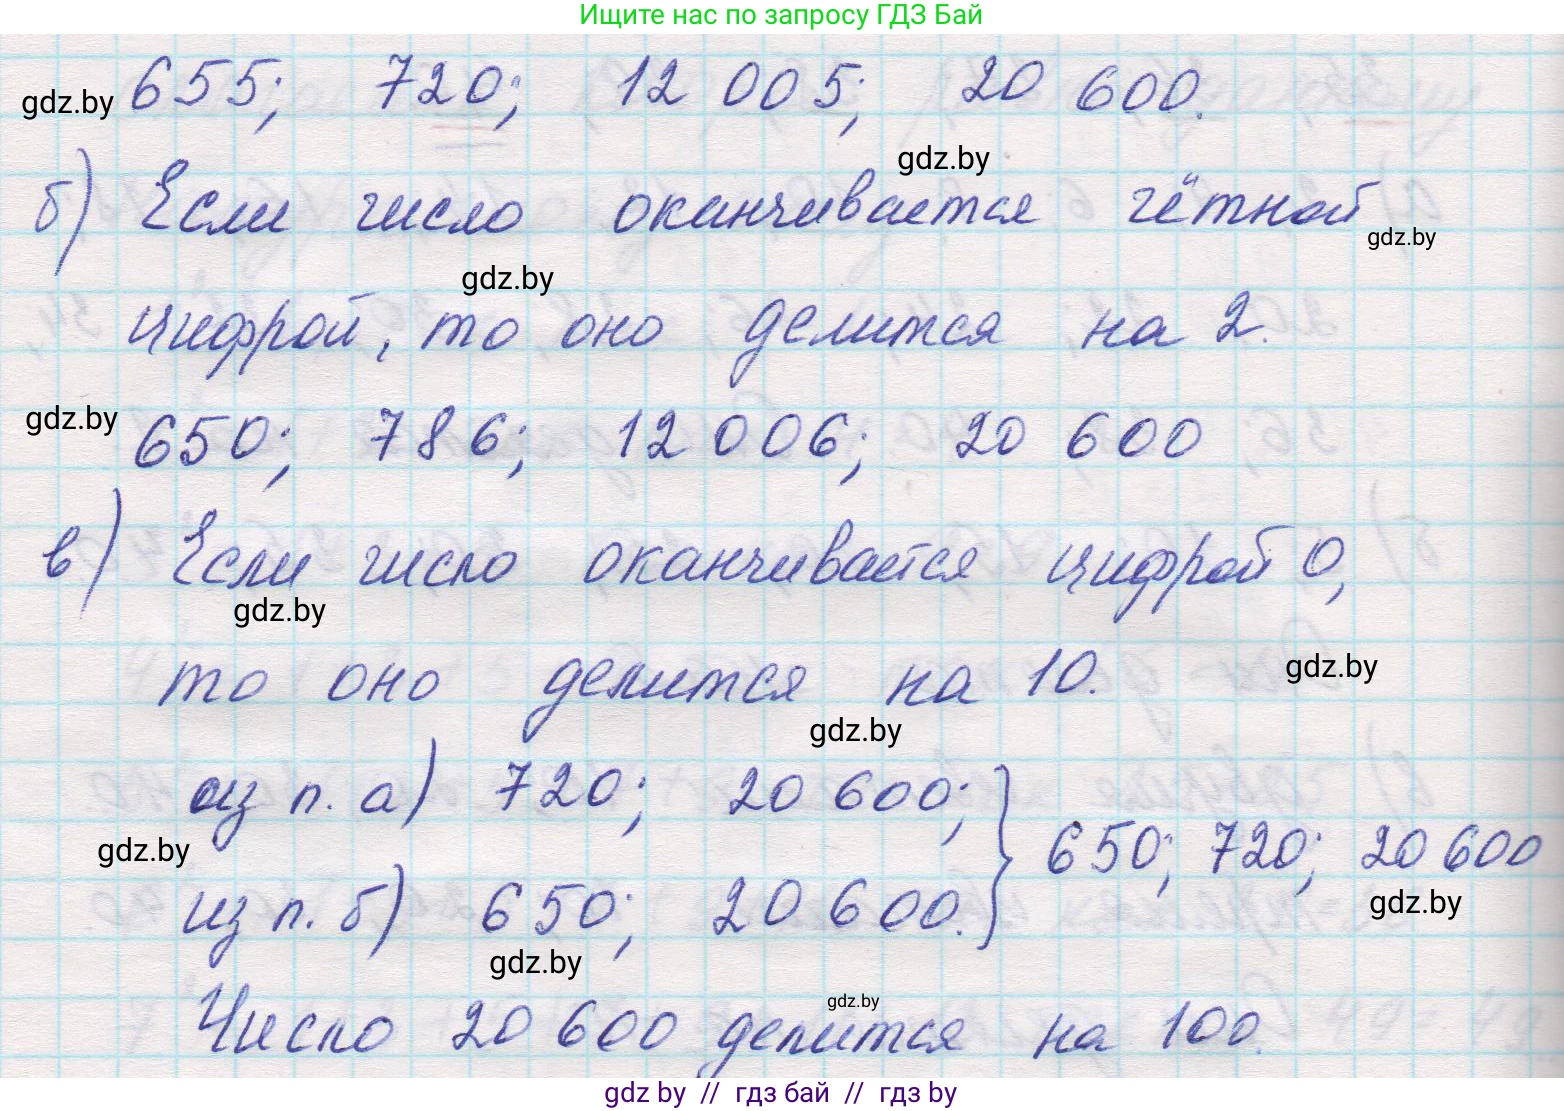 Ищите нас по запросу ГДЗ Бай
gdz.by 655; 720; 12 005; 20 600.
gdz.by
б) Если число оканчивается чётной
gdz.by
gdz.by
цифрой, то оно делится на 2.
gdz.by 650; 786; 12 006; 20 600
в) Если число оканчивается цифрой 0,
gdz.by
то оно делится на 10. gdz.by
gdz.by
из п. а) 720; 20 600;
gdz.by } 650; 720; 20 600
из п. б) 650; 20 600. gdz.by
gdz.by
gdz.by
Число 20 600 делится на 100.
gdz by // гдз бай // гдз by